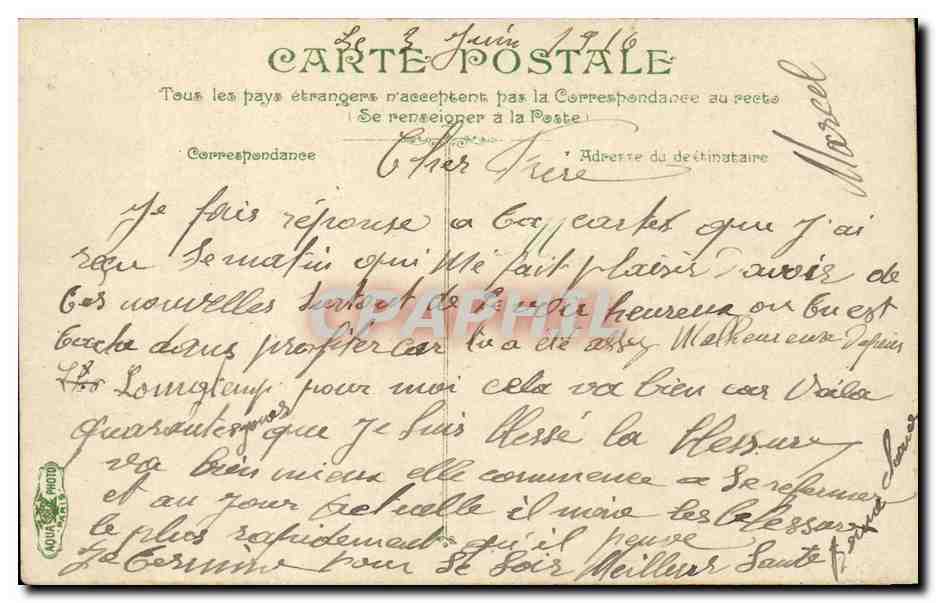 Le 3 Juin 1916
CARTE POSTALE
Tous les pays étrangers n'acceptent pas la Correspondance au recto
(Se renseigner à la Poste)
Correspondance
Adresse du destinataire
Marcel
Cher Frère
Je fais réponse a ta cartes que J'ai
reçu Se matin qui Mé fait plaisir d'avoir de
tes nouvelles surtout de te voir heureux ou tu est
tache dans profiter car tu a été assez Malheureux Depuis
Longtemp pour moi cela va bien car Voila
quarantes jours que Je suis blessé la blessure
va bien mieux elle commence a Se refermer
et au jour actuelle il les blessure
le plus rapidement qu'il peuve
Je termine pour Se Soir Meilleur Santé
bonne chance
CPAPHIL
AQUA PHOTO
PARIS